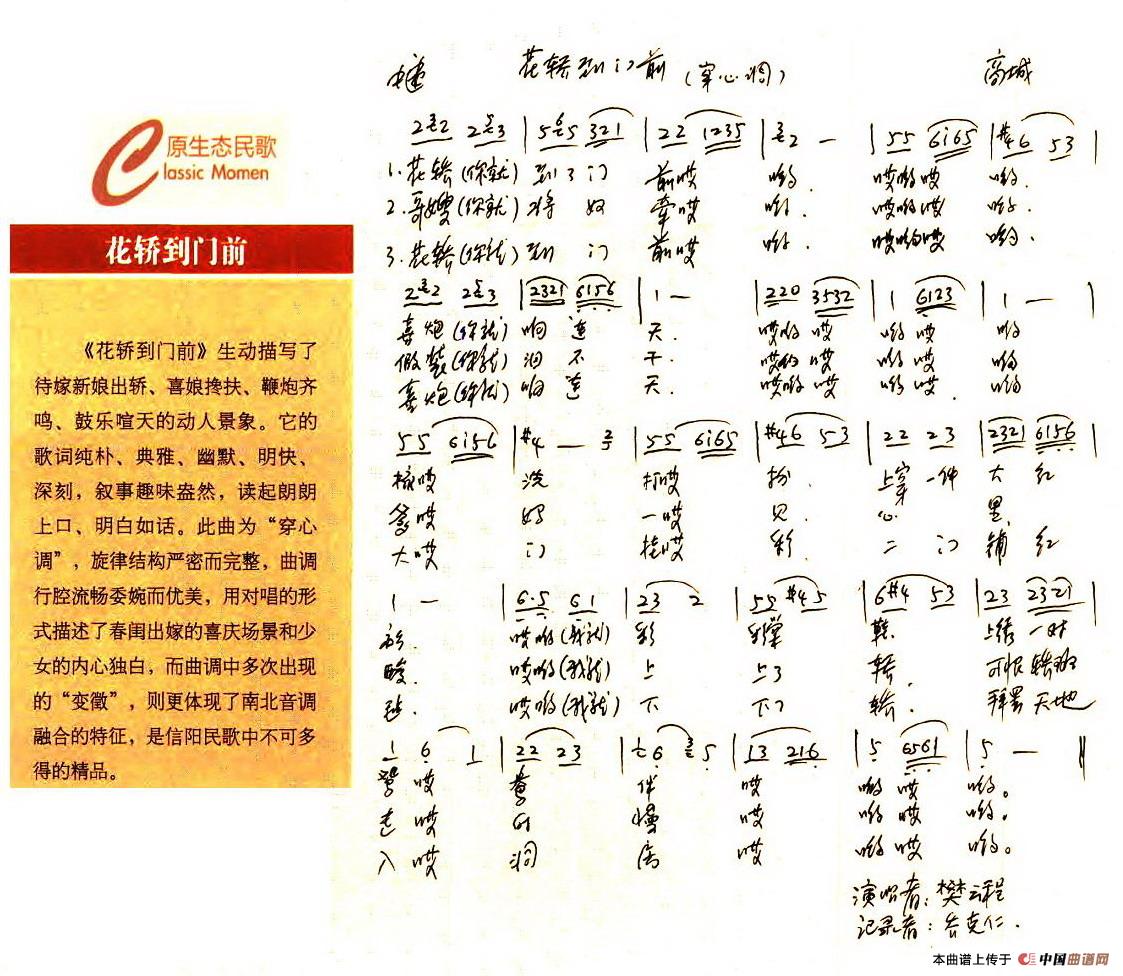 原生态民歌
Classic Momen
花轿到门前
《花轿到门前》生动描写了
待嫁新娘出轿、喜娘搀扶、鞭炮齐
鸣、鼓乐喧天的动人景象。它的
歌词纯朴、典雅、幽默、明快、
深刻，叙事趣味盎然，读起朗朗
上口、明白如话。此曲为“穿心
调”，旋律结构严密而完整，曲调
行腔流畅委婉而优美，用对唱的形
式描述了春闺出嫁的喜庆场景和少
女的内心独白，而曲调中多次出现
的“变徵”，则更体现了南北音调
融合的特征，是信阳民歌中不可多
得的精品。
花轿到门前（穿心调） 商城
55 6i65 | #46 53 |
1.花轿(你就) 到了门 前哎 哟. 哎哟哎 哟.
2.哥嫂(你就) 将奴 牵哎 哟. 哎哟哎 哟.
3.花轿(你就) 到门 前哎 哟. 哎哟哎 哟.
|2321 6156 | 1 — | 220 3532 | 1 6123 | 1 — |
喜炮(你就) 响连 天. 哎哟哎 哟哎 哟
假装(你就) 泪不 干. 哎哟哎 哟哎. 哟
喜炮(你就) 响连 天. 哎哟哎 哟哎. 哟
55 6i56 | #4 — | 55 6i65 | #46 53 | 22 23 | 2321 6156 |
梳哎 洗 打哎 扮. 上穿一件 大红
爹哎 妈 一哎 见. 心 里
大哎 门 挂哎 彩. 二门 铺红
1 — | 6·5 61 | 23 2 | 55 #45 | 6#4 53 | 23 2321 |
哎哟(我就) 彩 鞋. 上绣一对
酸. 哎哟(我就) 上 上了 轿. 可恨轿班
毡. 哎哟(我就) 下 下了 轿. 拜罢天地
1 6 1 | 22 23 | 13 216 | 5 6561 | 5 — ‖
鸳哎 鸯 伴 哎 哟哎 哟。
走哎 慢 哎 哟哎 哟。
入哎 洞 房 哎 哟哎 哟。
演唱者：樊云程
记录者：
本曲谱上传于 中国曲谱网